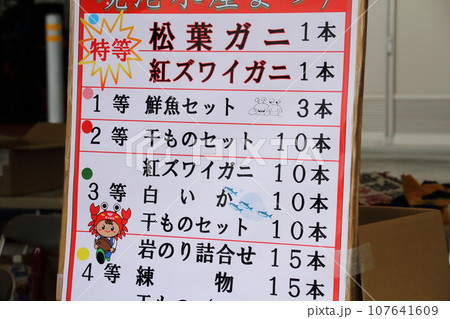 特等
松葉ガニ 1本
紅ズワイガニ 1本
1等 鮮魚セット 3本
2等 干ものセット 10本
紅ズワイガニ 10本
3等 白いか 10本
干ものセット 10本
岩のり詰合せ 15本
4等 練物 15本
PIXTA
pixta.jp - 107641609